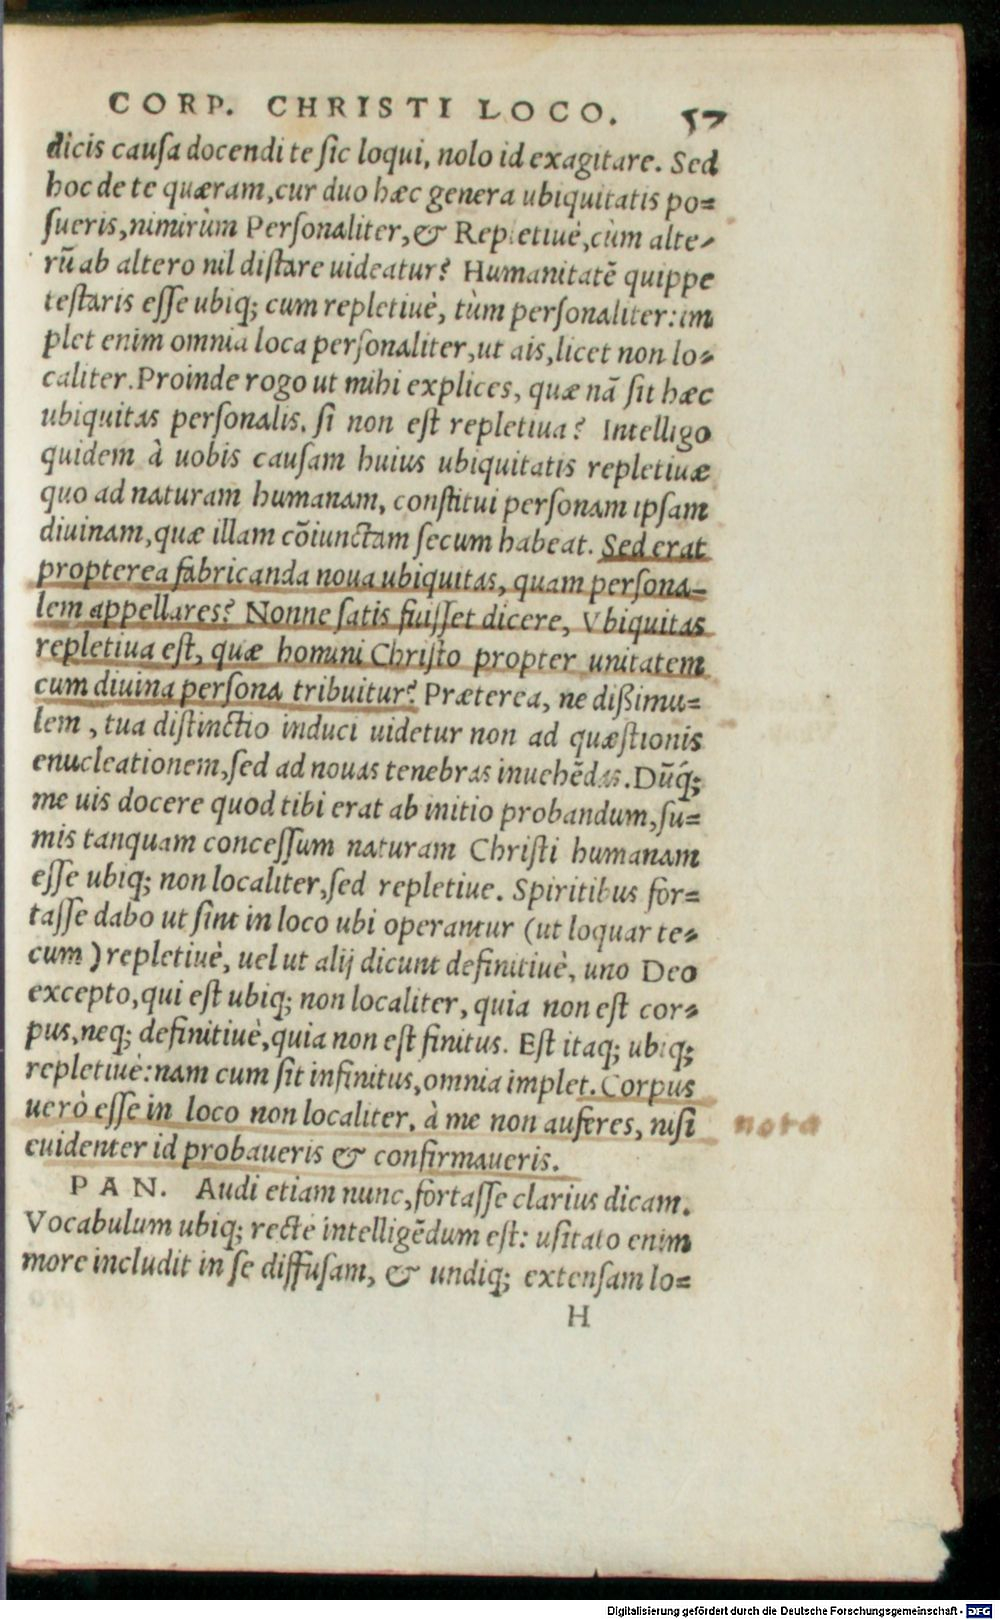 CORP. CHRISTI LOCO. 57
dicis causa docendi te sic loqui, nolo id exagitare. Sed
hoc de te quæram, cur duo hæc genera ubiquitatis po=
sueris, nimirùm Personaliter, & Repletiuè, cùm alte-
rū ab altero nil distare uideatur? Humanitatē quippe
testaris esse ubiq; cum repletiuè, tùm personaliter: im
plet enim omnia loca personaliter, ut ais, licet non lo-
caliter. Proinde rogo ut mihi explices, quæ nā sit hæc
ubiquitas personalis, si non est repletiua? Intelligo
quidem à uobis causam huius ubiquitatis repletiuæ
quo ad naturam humanam, constitui personam ipsam
diuinam, quæ illam cōiunctam secum habeat. Sed erat
propterea fabricanda noua ubiquitas, quam persona-
lem appellares? Nonne satis fuisset dicere, Vbiquitas
repletiua est, quæ homini Christo propter unitatem
cum diuina persona tribuitur? Præterea, ne dißimu=
lem, tua distinctio induci uidetur non ad quæstionis
enucleationem, sed ad nouas tenebras inuehēdas. Dūq́;
me uis docere quod tibi erat ab initio probandum, su=
mis tanquam concessum naturam Christi humanam
esse ubiq; non localiter, sed repletiue. Spiritibus for=
tasse dabo ut sint in loco ubi operantur (ut loquar te-
cum) repletiuè, uel ut alij dicunt definitiuè, uno Deo
excepto, qui est ubiq; non localiter, quia non est cor-
pus, neq; definitiuè, quia non est finitus. Est itaq; ubiq;
repletiuè: nam cum sit infinitus, omnia implet. Corpus
uerò esse in loco non localiter, à me non auferes, nisi
euidenter id probaueris & confirmaueris.
nota
PAN. Audi etiam nunc, fortasse clarius dicam.
Vocabulum ubiq; recte intelligēdum est: usitato enim
more includit in se diffusam, & undiq; extensam lo=
H
Digitalisierung gefördert durch die Deutsche Forschungsgemeinschaft - DFG